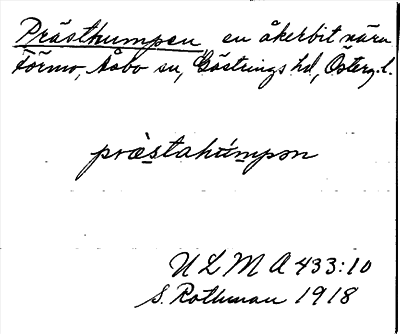 Prästkumpen, en åkerbit nära
Förmo, Åsbo sn, Göstrings hd, Österg. l.
præstakúmpon
U L M A 433:10
S. Rothman 1918